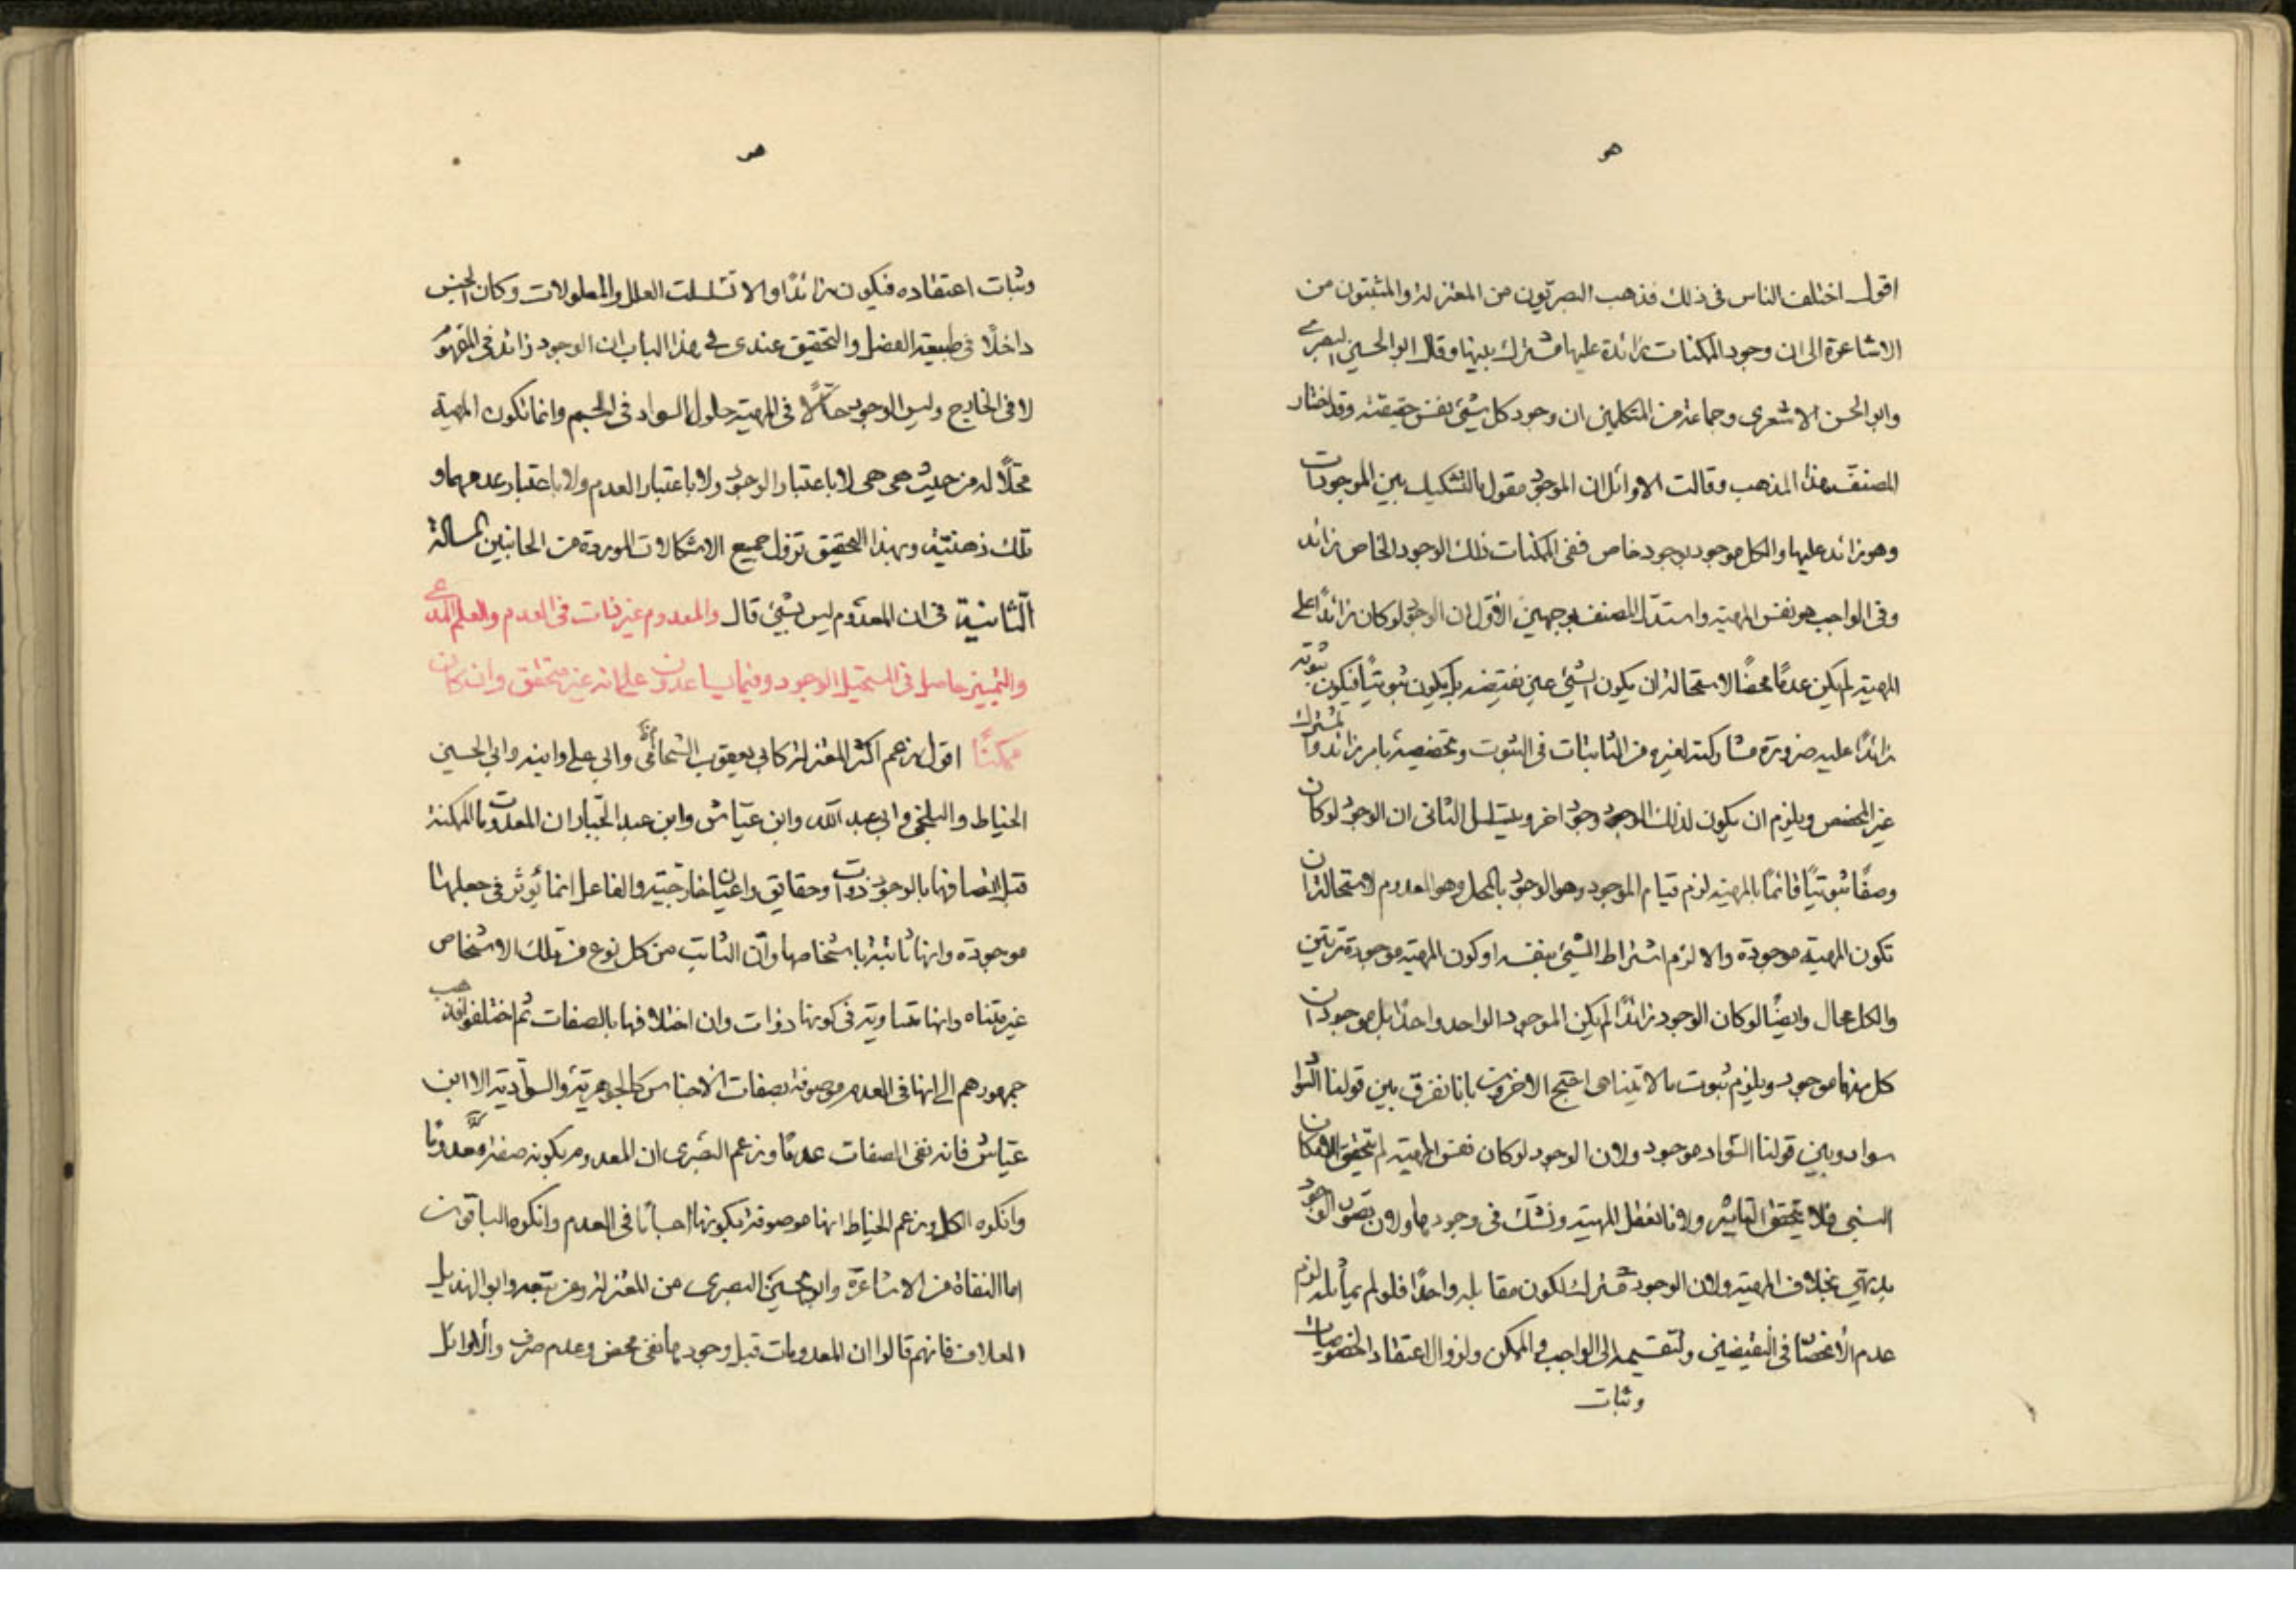 اقول اختلف الناس فى ذلك فذهب البصريون من المعتزلة والمثبتون من
الاشاعرة الى ان وجود الممكنات زائدة عليها مشترك بينها وقال ابو الحسين البصرى
وابو الحسن الاشعرى وجماعة من المتكلمين ان وجود كل شئ نفس حقيقته وقد اختار
المصنف هذا المذهب وقالت الاوائل ان الموجود مقول بالتشكيك بين الموجودات
وهو زائد عليها والكل موجود بوجود خاص ففى الممكنات ذلك الوجود الخاص زائد
وفى الواجب هو نفس المهية واستدل المصنف بوجهين الاول ان الوجود لو كان زائدًا على
المهية لم يكن عدمًا محضًا لاستحالة ان يكون الشئ عين نقيضه بل يكون ثبوتيًا فيكون ثبوته
زائدًا عليه ضرورة مشاركته لغيره من الثابتات فى الثبوت وتخصيصه بامر زائد والمشترك
غير المخصص ويلزم ان يكون لذلك الوجود وجود اخر ويتسلسل الثانى ان الوجود لو كان
وصفًا ثبوتيًا قائمًا بالمهية لزم قيام الموجود وهو الوجود بالمحل وهو المعدوم لاستحالة ان
تكون المهية موجودة والا لزم اشتراط الشئ بنفسه او كون المهية موجودة مرتين
والكل محال وايضًا لو كان الوجود زائدًا لم يكن الموجود الواحد واحدًا بل موجودان
كل منهما موجود ويلزم ثبوت ما لا يتناهى احتج الاخرون بانا نفرق بين قولنا السواد
سواد وبين قولنا السواد موجود ولان الوجود لو كان نفس المهية لم يتحقق الامكان
النسبى فلا يتحقق التاثير ولانا نعقل المهية ونشك فى وجودها ولان تصور الوجود
بديهى بخلاف المهية ولان الوجود مشترك لكون مقابله واحدًا فلو لم يماثله لزم
عدم الانحصار فى النقيضين ولتقسيمه الى الواجب والممكن ولزوال اعتقاد الخصوصيات
وثبات
وثبات اعتقاده فيكون زائدًا والا تسلسلت العلل والمعلولات وكان الجنس
داخلًا فى طبيعة الفصل والتحقيق عندى فى هذا الباب ان الوجود زائد فى المفهوم
لا فى الخارج وليس الوجود حالًا فى المهية حلول السواد فى الجسم وانما تكون المهية
محلًا له من حيث هى هى لا باعتبار الوجود ولا باعتبار العدم ولا باعتبار عدمهما و
تلك ذهنية وبهذا التحقيق تزول جميع الاشكالات الموردة من الجانبين المسالة
الثانية فى ان المعدوم ليس بشئ قال والمعدوم غير ثابت فى العدم والعلم المدعى
والتميز حاصل فى المستحيل الوجود وفيما يساعدون على انه غير متحقق وان كان
ممكنًا اقول زعم اكثر المعتزلة كابى يعقوب الشحام وابى على وابنه وابى الحسين
الخياط والبلخى وابى عبد الله وابن عياش وابن عبد الجبار ان المعدومات الممكنة
قبل اتصافها بالوجود ذوات وحقايق واعيان خارجية والفاعل انما يؤثر فى جعلها
موجودة وانها ثابتة باشخاصها وان الثابت من كل نوع من تلك الاشخاص
غير متناه وانها متساوية فى كونها ذوات وان اختلافها بالصفات ثم اختلفوا فذهب
جمهورهم الى انها فى العدم موصوفة بصفات الاجناس كالجوهرية والسوادية الا ابن
عياش فانه نفى الصفات عدمًا وزعم البصرى ان المعدوم بكونه صفة معدومًا
وانكره الكل وزعم الخياط انها موصوفة بكونها اجسامًا فى العدم وانكره الباقون
اما النفاة من الاشاعرة وابو الحسين البصرى من المعتزلة ومن تبعه وابو الهذيل
العلاف فانهم قالوا ان المعدومات قبل وجودها نفى محض وعدم صرف والاوائل